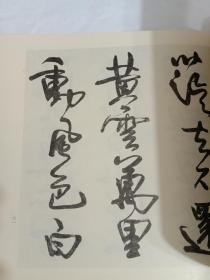 茫去不還
黄雲萬里
動風色白